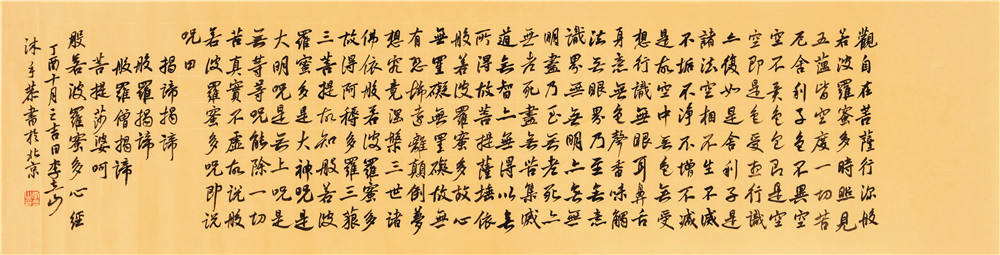 觀自在菩薩行深般
若波羅蜜多時照見
五蘊皆空度一切苦
厄舍利子色不異空
空不異色色即是空
空即是色受想行識
亦復如是舍利子是
諸法空相不生不滅
不垢不淨不增不減
是故空中無色無受
想行識無眼耳鼻舌
身意無色聲香味觸
法無眼界乃至無意
識界無無明亦無無
明盡乃至無老死亦
無老死盡無苦集滅
道無智亦無得以無
所得故菩提薩埵依
般若波羅蜜多故心
無罣礙無罣礙故無
有恐怖遠離顛倒夢
想究竟涅槃三世諸
佛依般若波羅蜜多
故得阿耨多羅三藐
三菩提故知般若波
羅蜜多是大神呪是
大明呪是無上呪是
無等等呪能除一切
苦真實不虛故說般
若波羅蜜多呪即說
呪曰
揭諦揭諦
般羅揭諦
般羅僧揭諦
菩提莎婆呵
般若波羅蜜多心經
丁酉十月之吉日李
沐手恭書於北京